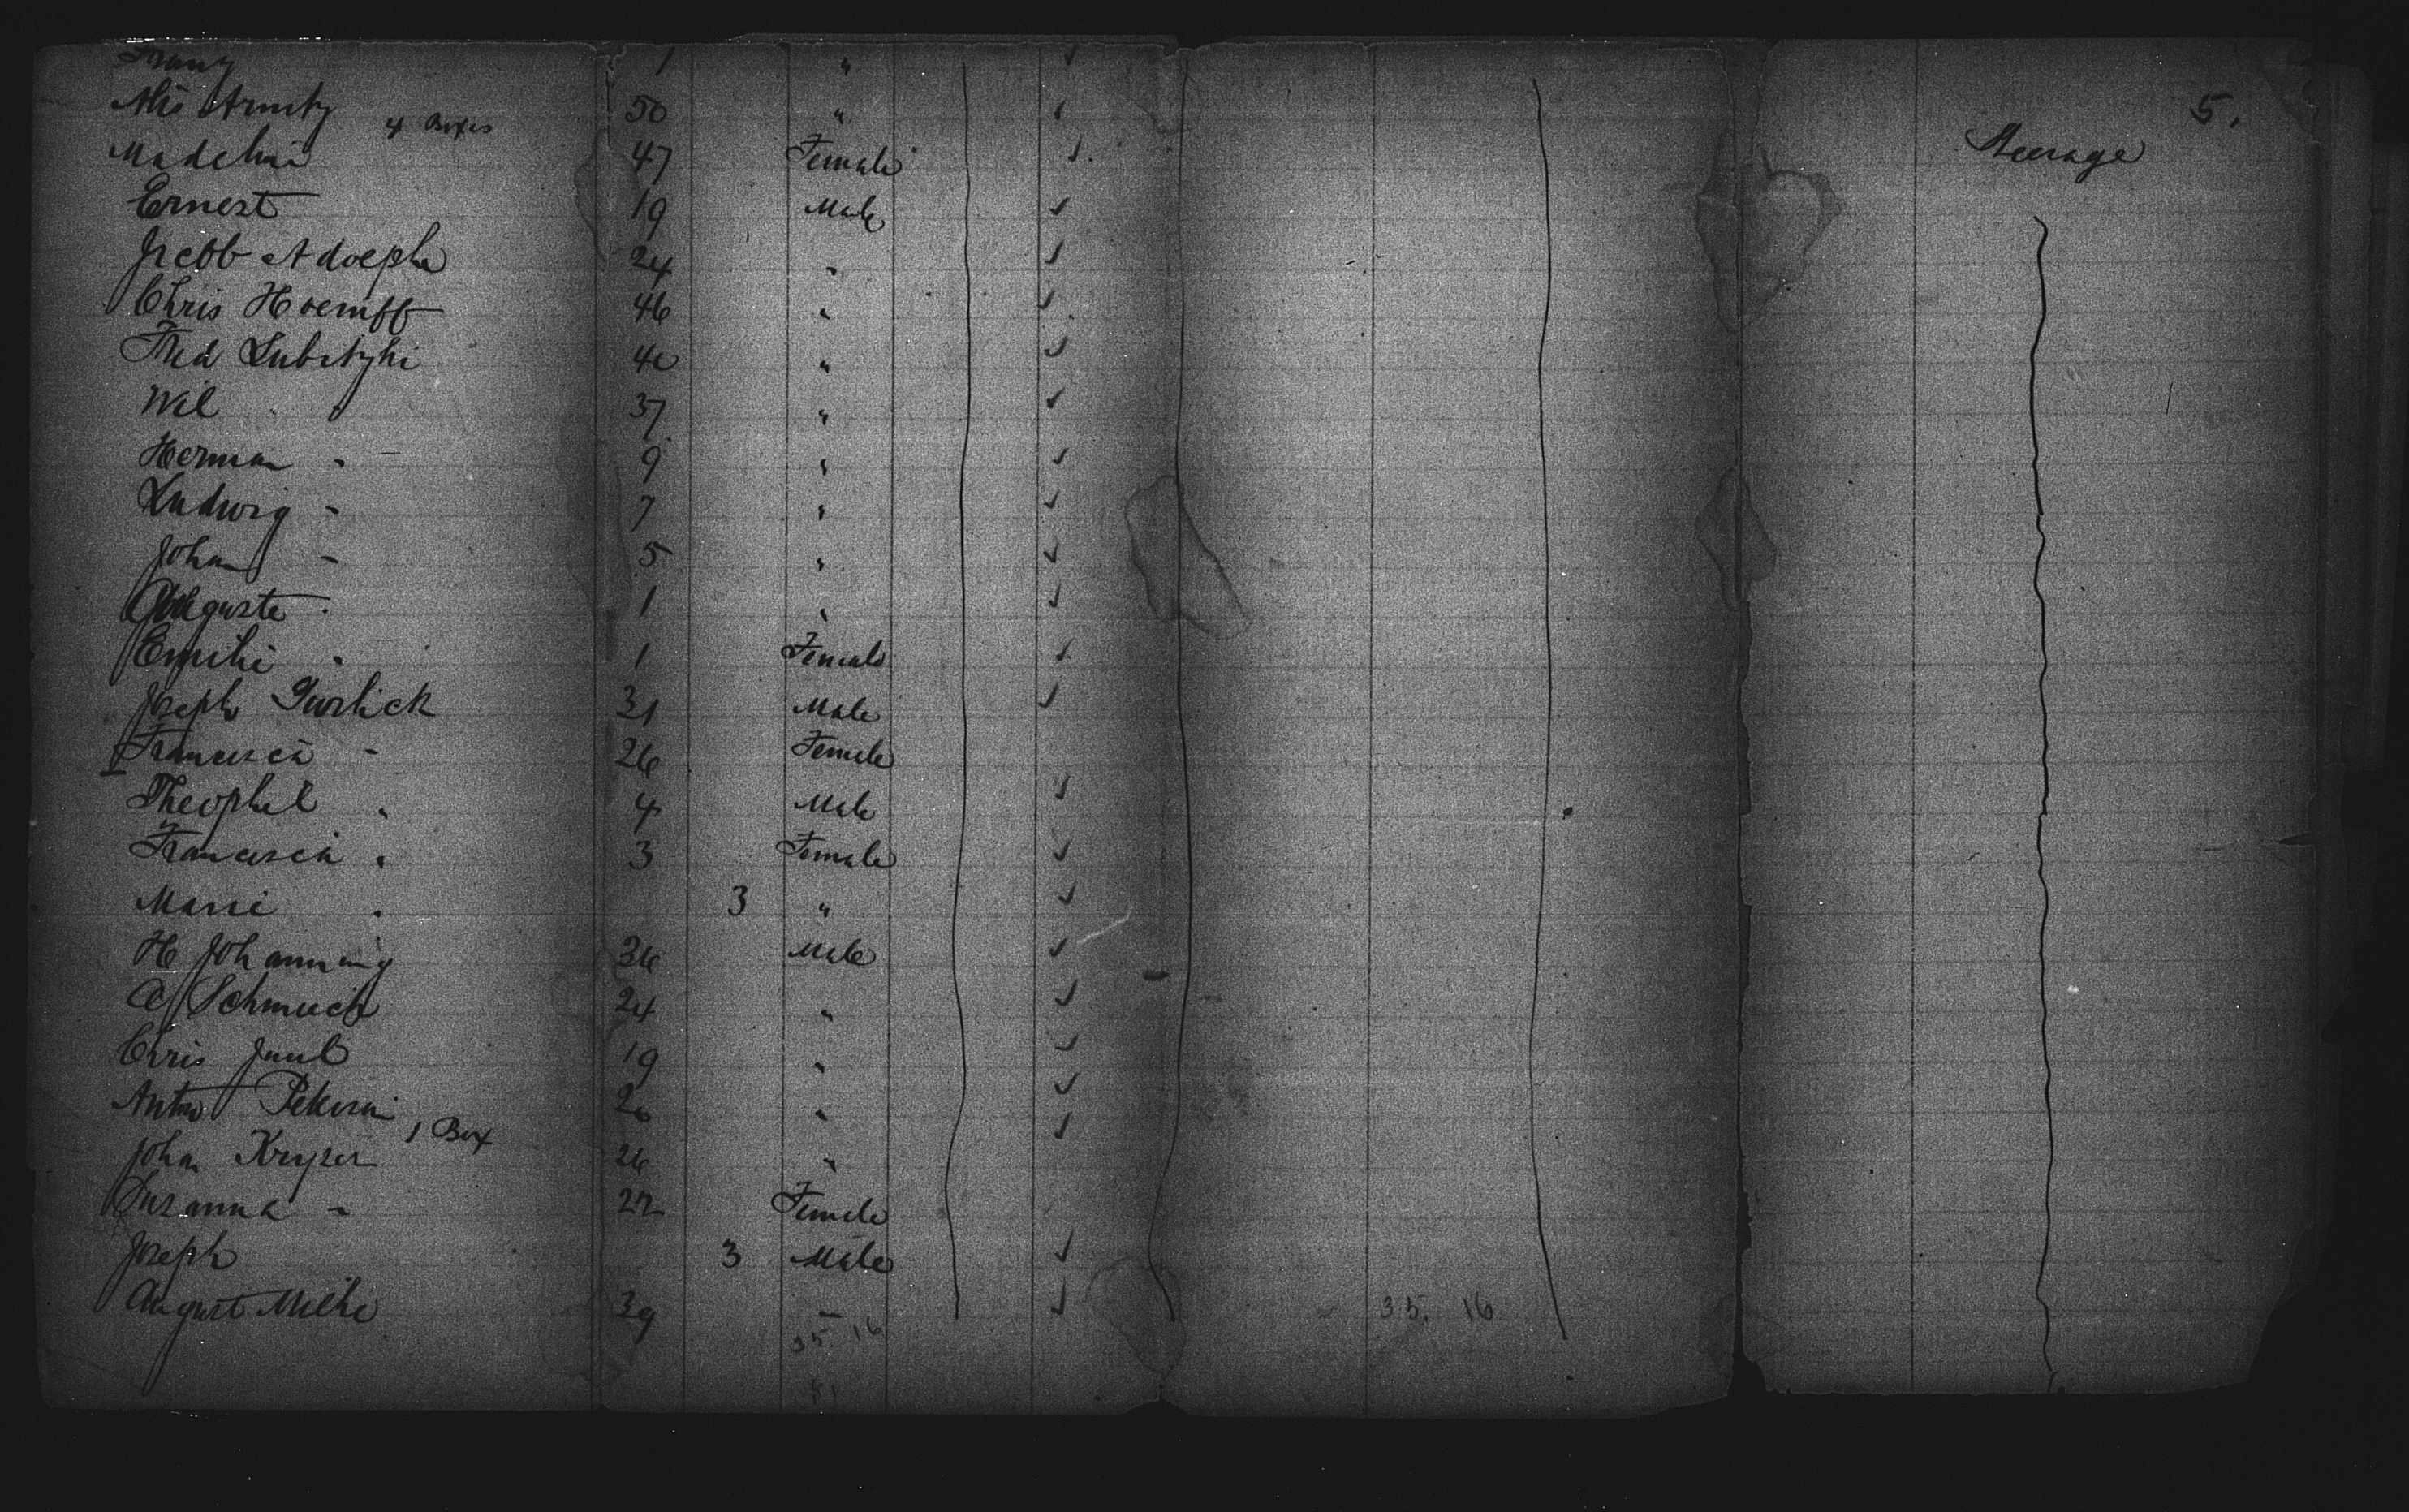 Franz 1 "
5.
Alis Arnitz 4 Boxes 50 "
Steerage
Madelin 47 Female
Ernest 19 Male
Adolph 24 "
Chris Hoemff 46 "
Fred Lubitzki 40 "
Wil 37 "
Herman " 9 "
Ludwig " 7 "
Johan " 5 "
Auguste " 1 "
Emilie " 1 Female
Joseph Gurlick 31 Male
Francisca " 26 Female
Theophil " 4 Male
Francisca " 3 Female
Marie " 3 "
H Johanning 36 Male
A Schmuck 24 "
Chris Juul 19 "
Anton 26 "
1 Box
Johan Kryzer 26 "
Susanna " 22 Female
Joseph 3 Male
August Milke 39 "
35. 16
35. 16